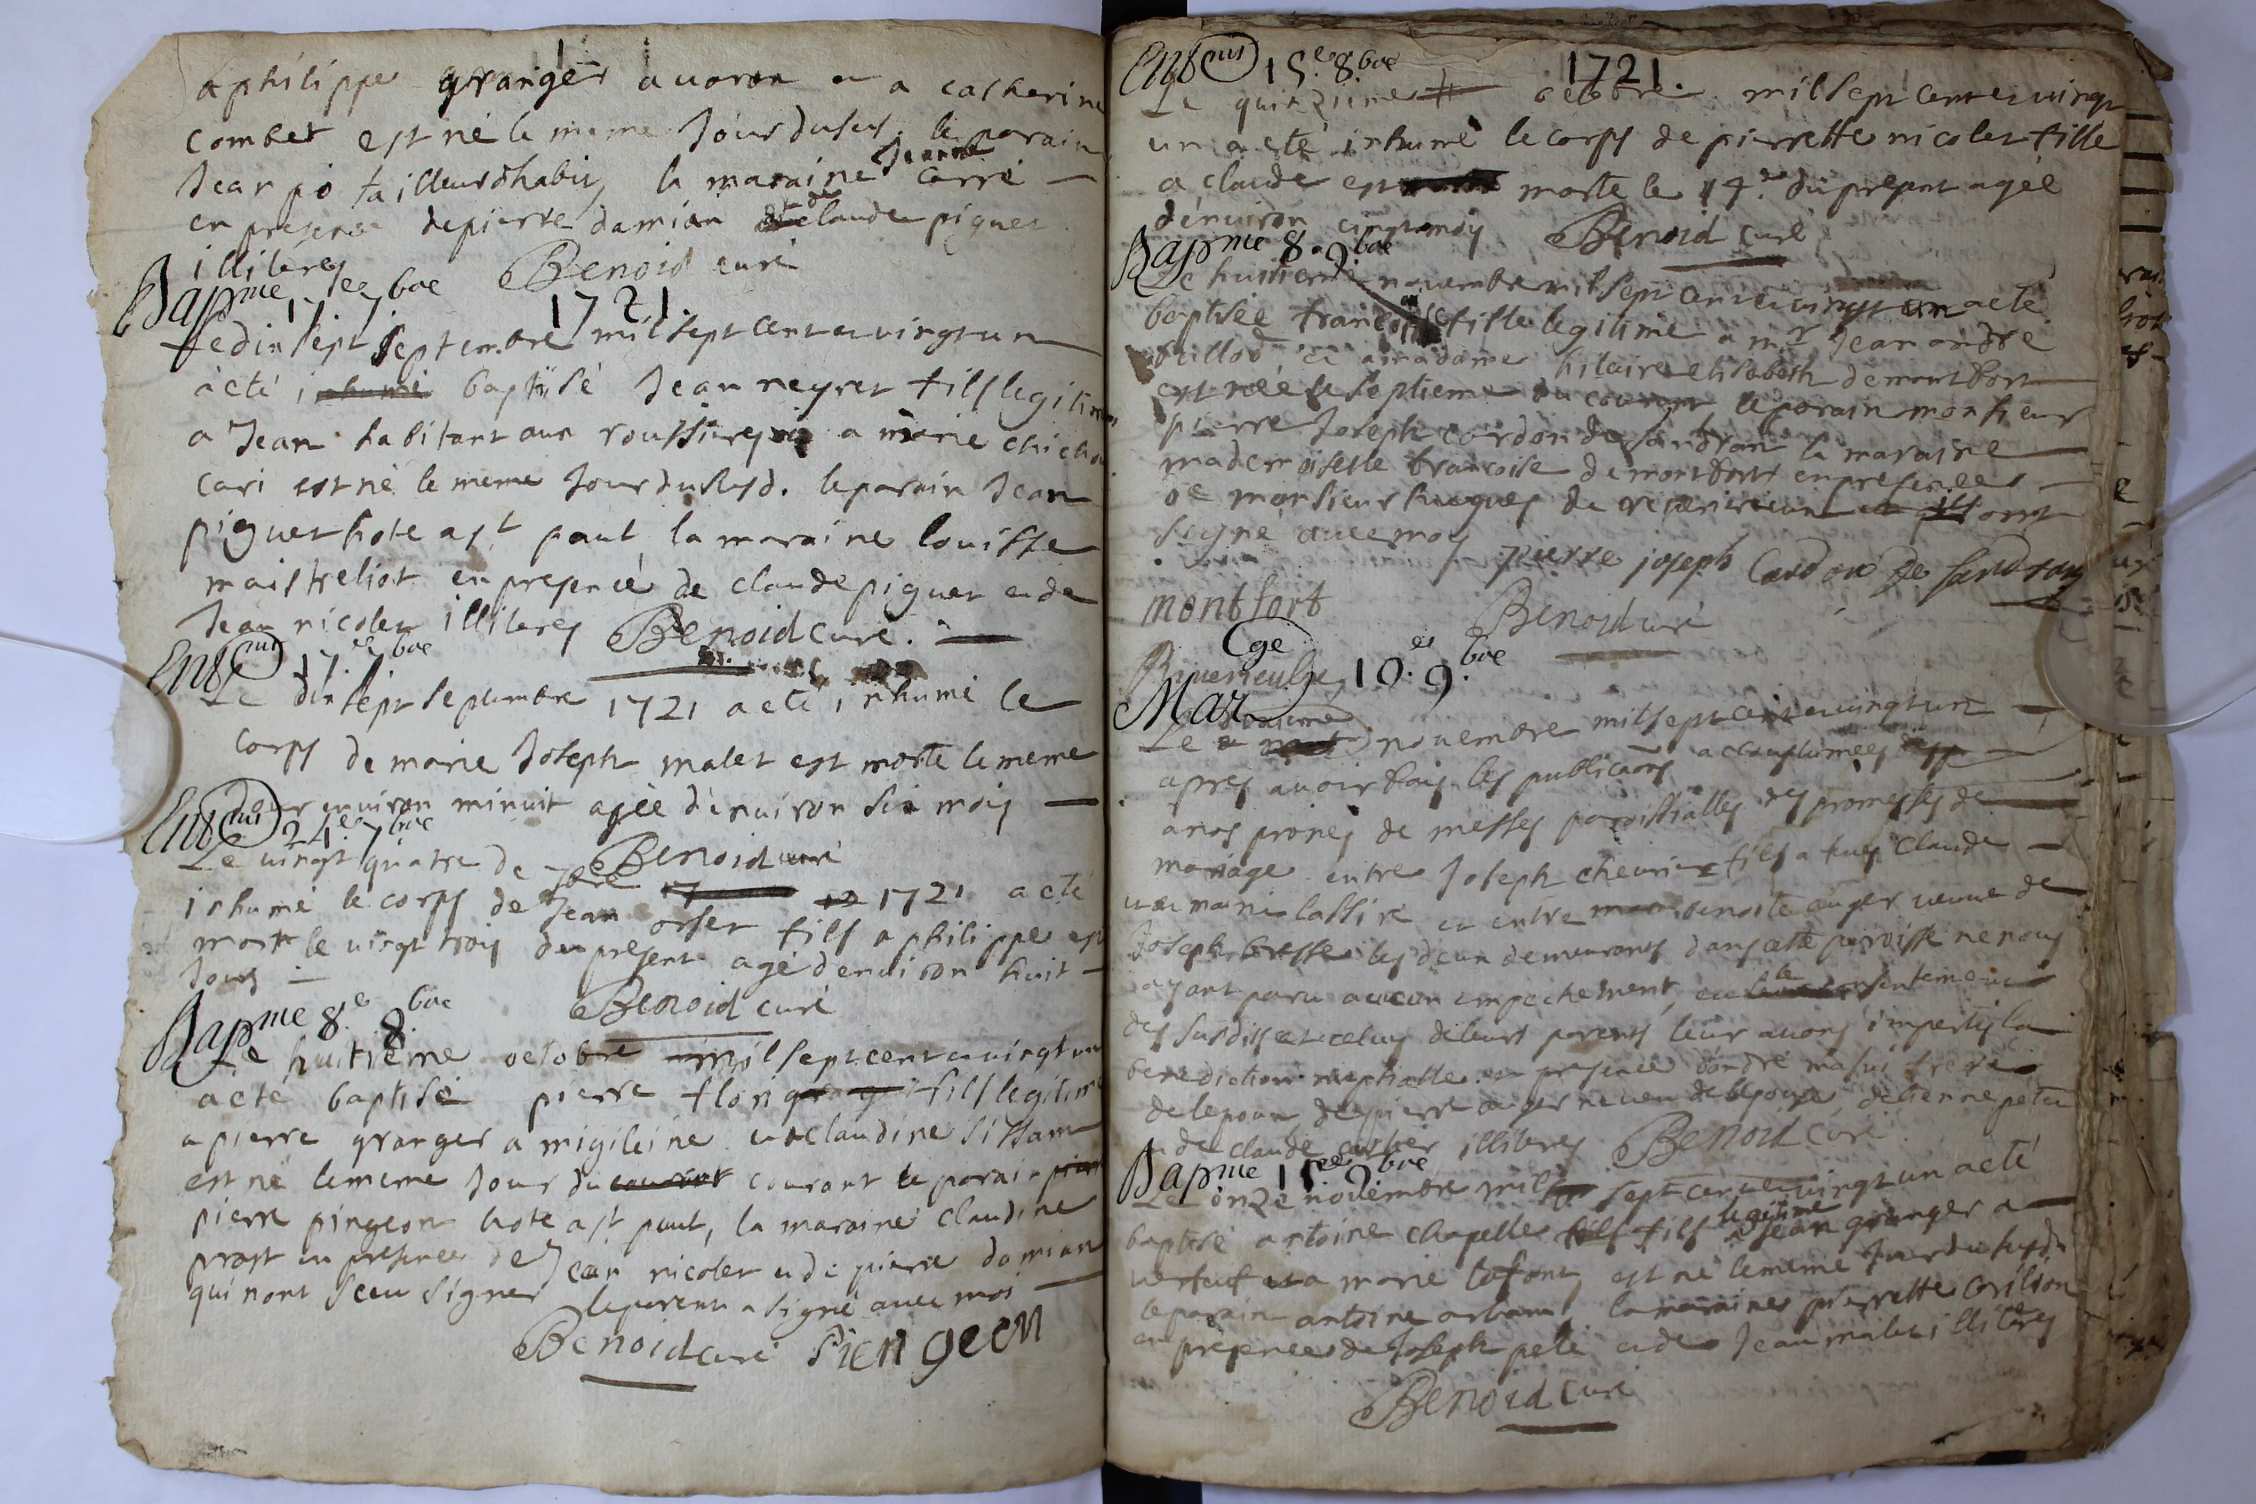 a philippe granger a uoron et a catherine
combet est né le meme Jour dusus. le parain
Jean po tailleur d'habit, la maraine Jeanne carré
en presence de pierre damian et de claude piguet
illiteres Benoid curé
Bapme 17ee 7bre 1721.
Le dix sept septembre mil sept cent et vingt un
a eté baptisé Jean neyret fils legitime
a Jean habitant aux roussires a marie
cari est né le meme Jour du susd. le parain Jean
piguet hote a st paul, la maraine louisse
maistreliot en presence de claude piguet et de
Jean nicolet illiteres Benoid curé.
Entemt 17ee 7bre
Le dix sept septembre 1721 a eté inhumé le
corps de marie Joseph malet est morte le meme
Jour environ minuit agée d'environ six mois
Entemt 24ee 7bre
Le vingt quatre de 7bre 1721 a eté
inhumé le corps de Jean orset fils a philippe est
mort le vingt trois du present agé d'environ huit
Jours Benoid curé
Bapme 8e 8bre
Le huitieme octobre mil sept cent et vingt un
a eté baptisé pierre flori fils legitime
a pierre granger a migileine et a claudine sissam
est né le meme Jour du courant le parain
pierre pingeon hote a st paul, la maraine claudine
prost en presence de Jean nicolet et de pierre damian
qui n'ont sceu signer le parent a signé avec moi
Benoid curé Piengeon
Entemt 15ee 8bre 1721.
Le quinzieme octobre mil sept cent et vingt
un a eté inhumé le corps de pierrette nicolet fille
a claude est morte le 14e du present agée
d'environ cinq mois Benoid curé
Bapme 8e 9bre
Le huitieme novembre mil sept cent et vingt un a eté
baptisée francoise fille legitime a mr Jean andre
et a madame hilaire elisabeth de montfort
est née le septieme du courant le parain monsieur
pierre Joseph cardon de sandran la maraine
mademoiselle francoise de montfort en presence
de monsieur hugues de ont
signé avec moy pierre joseph Cardon de sandran
montfort Benoid curé
Mar ge 10ee 9bre
Le dixieme novembre mil sept cent et vingt un
apres avoir fais les publicaons accoustumées
a nos prones de messes paroissialles des promesses de
mariage entre Joseph chevrier fils a feus claude
et a marie lassire et entre benoite auger veuve de
Joseph bresse les deux demeurants dans cette paroisse ne nous
ayant paru aucun empechement, et le consentement
des susdits et celuy de leurs parents leur avons imparti la
benediction nuptialle en presence d'andré masui frere
de lepoux de pierre auger neveu de lepouse d'etienne petit
et de claude carber illiteres Benoid curé
Bapme 11ee 9bre
Le onze novembre mil sept cent et vingt un a eté
baptisé antoine chapelle fils legitime a Jean granger a
verfeuf et a marie lafont, est né le meme Jour du susd
le parain antoine arbant, la maraine pierrette carilion
en presence de Joseph peté et de Jean malet illiteres
Benoid curé